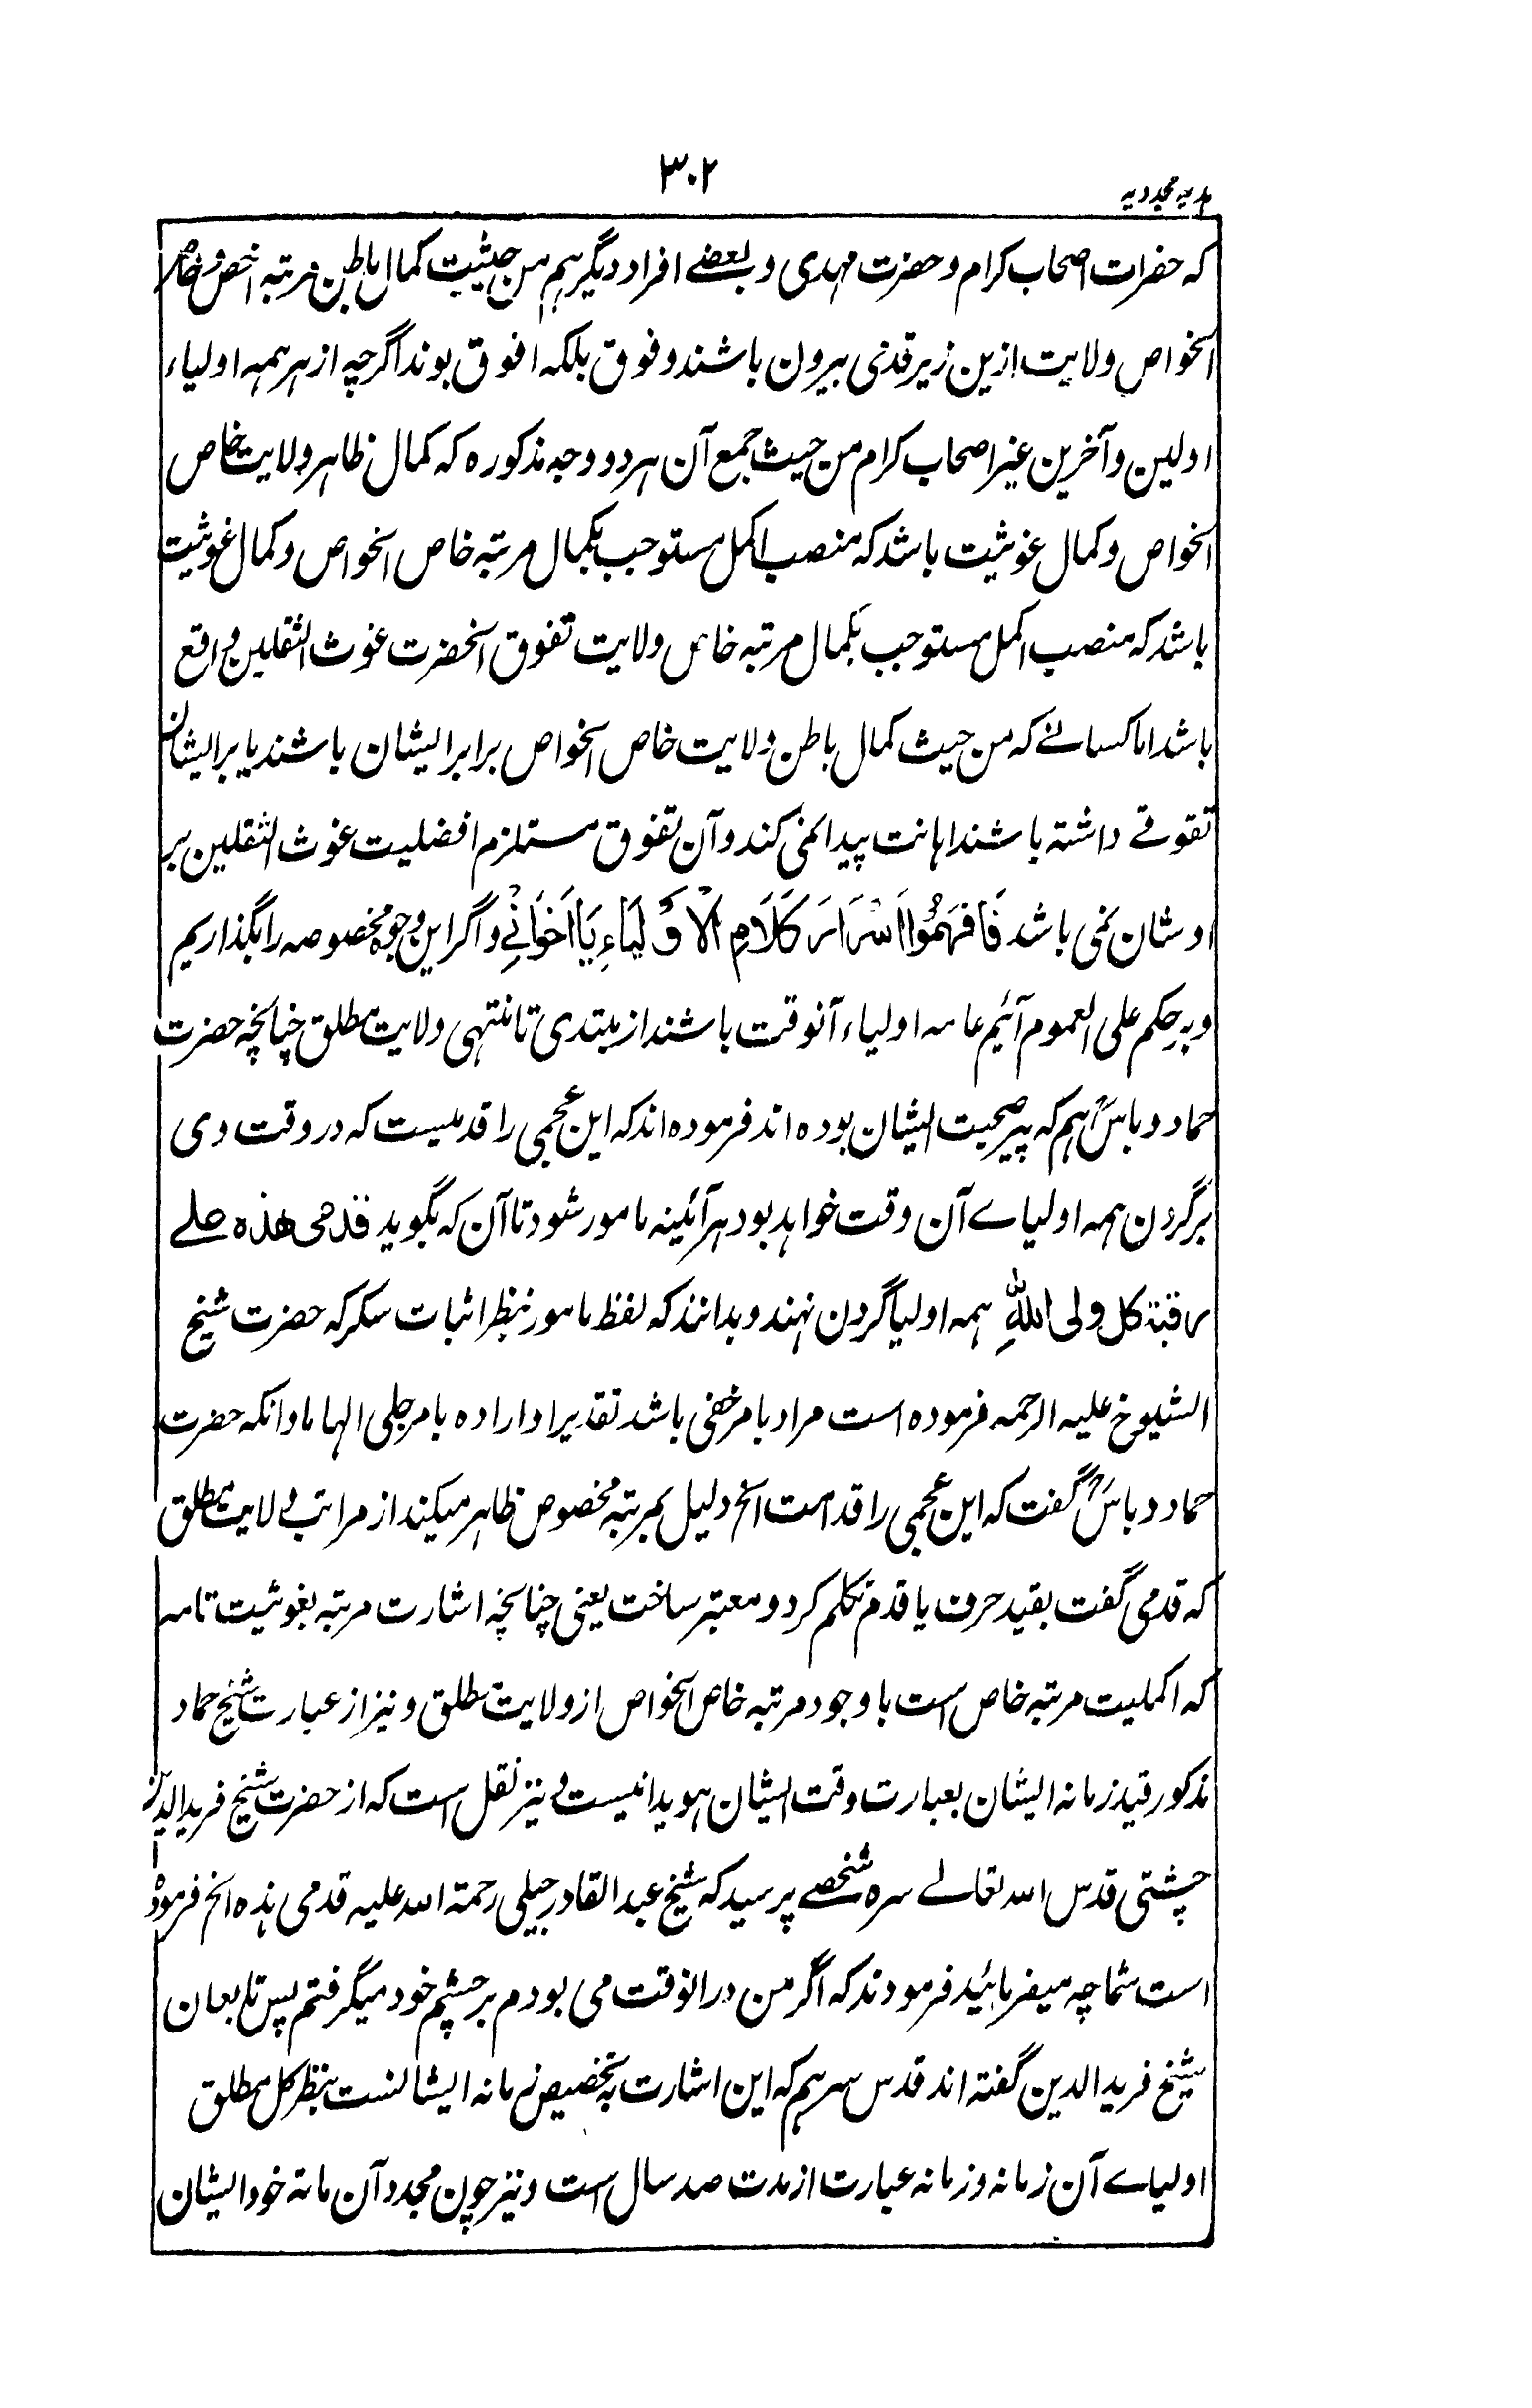 ۳۰۲
ہدیہ مجددیہ
کہ حضرات اصحاب کرام و حضرت مہدی و بعضے افراد دیگر ہم من حیثیت کمال باطن مرتبہ اخص و خاص
الخواص ولایت ازین زیر قدمی بیرون باشند و فوق بلکہ افوق بوند اگرچہ از ہر ہمہ اولیاء
اولین و آخرین غیر اصحاب کرام من حیث جمع آن ہر دو وجہ مذکورہ کہ کمال ظاہر ولایت خاص
الخواص و کمال غوثیت باشد کہ منصب اکمل مستوجب بکمال مرتبہ خاص الخواص و کمال غوثیت
باشد کہ منصب اکمل مستوجب بکمال مرتبہ خاص ولایت تفوق آنحضرت غوث الثقلین واقع
باشد اما کسانے کہ من حیث کمال باطن ولایت خاص الخواص برابر ایشان باشند یا بر ایشان
تفوقے داشتہ باشند اہانت پیدا نمی کند و آن تفوق مستلزم افضلیت غوث الثقلین بر
اوشان نمی باشد فَافْهَمُوْا اَسْرَارَ كَلَامِ الْاَوْلِيَاءِ يَا اَخَوَانِيْ و اگر این وجوہ مخصوصہ را بگذاریم
و بہ حکم علی العموم آئیم عامہ اولیاء آنوقت باشند از مبتدی تا منتہی ولایت مطلق چنانچہ حضرت
حماد دباسؒ ہم کہ پیر صحبت ایشان بودہ اند فرمودہ اند کہ این عجمی را قدمیست کہ در وقت وی
بر گردن ہمہ اولیاے آن وقت خواہد بود ہر آئینہ مامور شود تا آن کہ بگوید قدمی هذه علے
رقبة كل ولی اللهِ ہمہ اولیا گردن نہند و بدانند کہ لفظ مامور بنظر اثبات سکر کہ حضرت شیخ
الشیوخ علیہ الرحمہ فرمودہ است مراد بامر خفی باشد تقدیرا و ارادہ بامر جلی الہاما و آنکہ حضرت
حماد دباسؒ گفت کہ این عجمی را قدم است الخ دلیل بمرتبہ مخصوص ظاہر میکند از مراتب ولایت مطلق
کہ قدمی گفت بقید حرف یا قدم تکلم کرد و معتبر ساخت یعنی چنانچہ اشارت مرتبہ بغوثیت تامہ
کہ اکملیت مرتبہ خاص است با وجود مرتبہ خاص الخواص از ولایت مطلق و نیز از عبارت شیخ حماد
مذکور قید زمانہ ایشان بعبارت وقت ایشان ہویدا نیست و نیز نقل است کہ از حضرت شیخ فرید الدین
چشتی قدس اللہ تعالے سرہ شخصے پرسید کہ شیخ عبد القادر جیلی رحمۃ اللہ علیہ قدمی ہذہ الخ فرمودہ
است شما چہ میفرمائید فرمودند کہ اگر من در آنوقت می بودم بر چشم خود میگرفتم پس تابعان
شیخ فرید الدین گفتہ اند قدس سرہم کہ این اشارت بہ تخصیص زمانہ ایشانست بنظر کل مطلق
اولیاے آن زمانہ و زمانہ عبارت از مدت صد سال است و نیز چون مجدد آن ماتہ خود ایشان